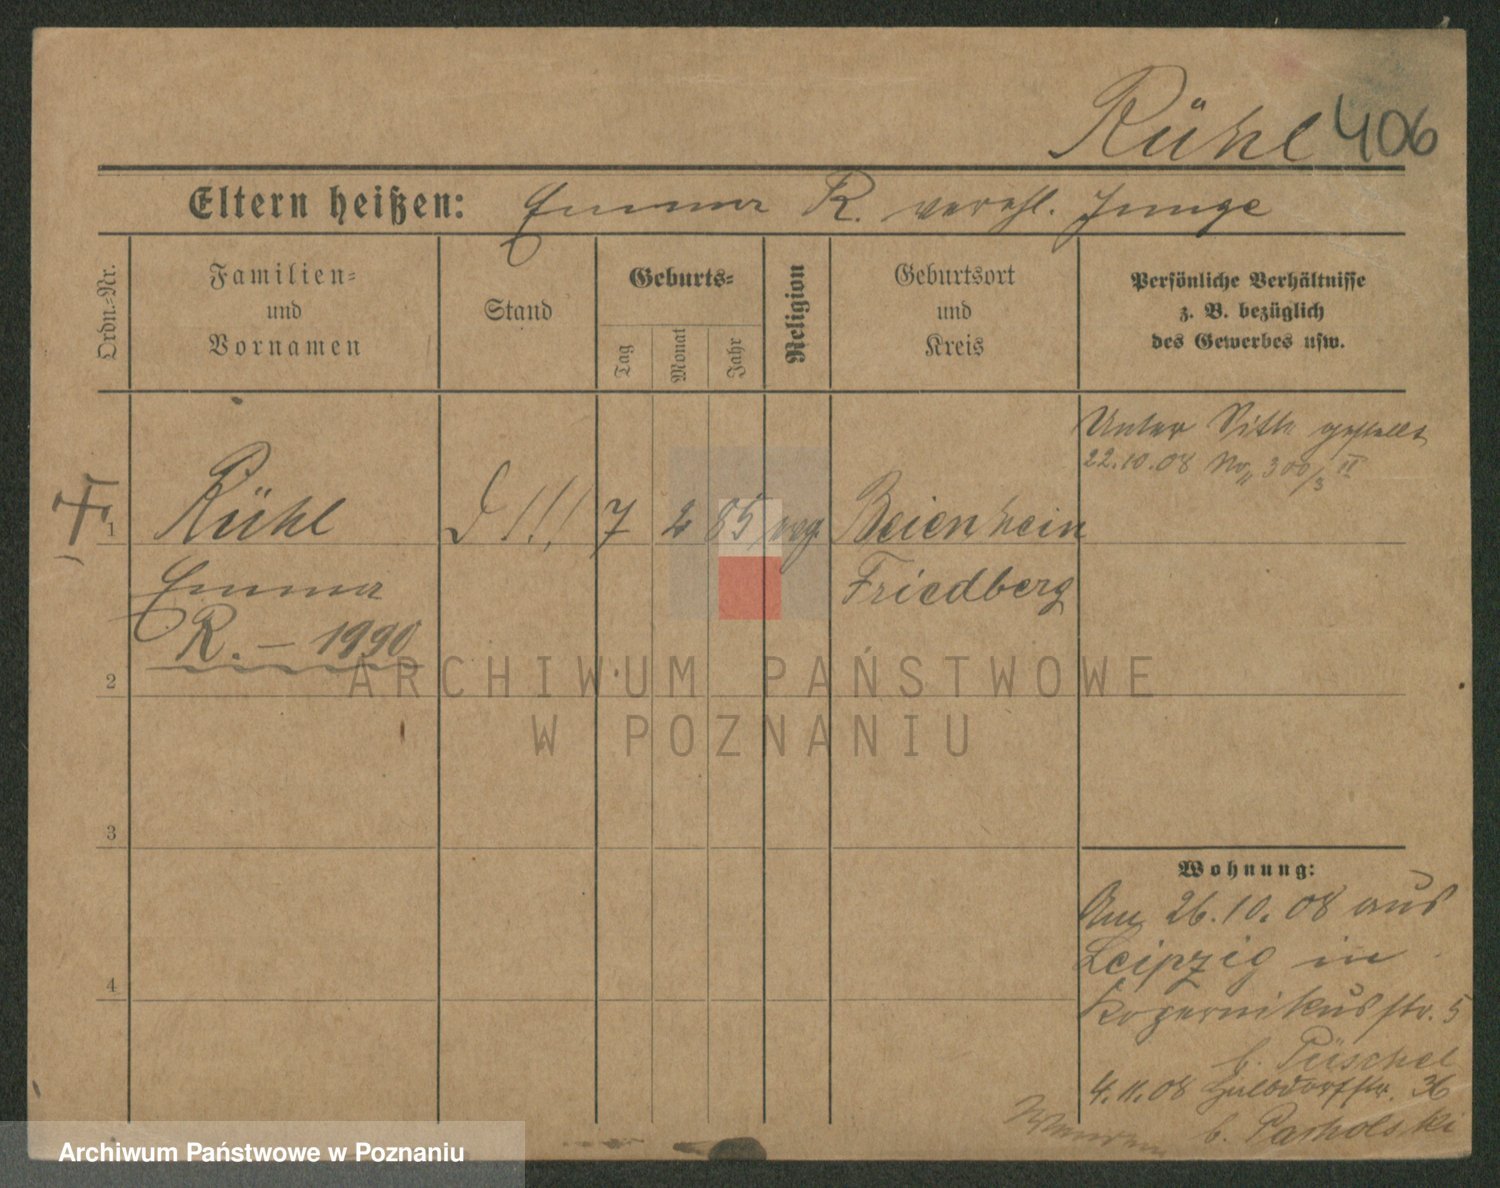 Rühl 406
Eltern heißen: Emma R. verehl. Junge
Ordn.-Nr.
Familien-
und
Vornamen
Stand
Geburts-
Tag
Monat
Jahr
Religion
Geburtsort
und
Kreis
Persönliche Verhältnisse
z. B. bezüglich
des Gewerbes usw.
Unter Sitte gestellt
22.10.08 No 300/3 II
1 Rühl 7 2 85 evg. Beienheim
Emma Friedberg
R. – 1990
2
3
4
Wohnung:
Am 26.10.08 aus
Leipzig in
Kopernikusstr. 5
b. Püschel
4.11.08 Halbdorfstr. 36
b. Parholski
Wenden
ARCHIWUM PAŃSTWOWE
W POZNANIU
Archiwum Państwowe w Poznaniu